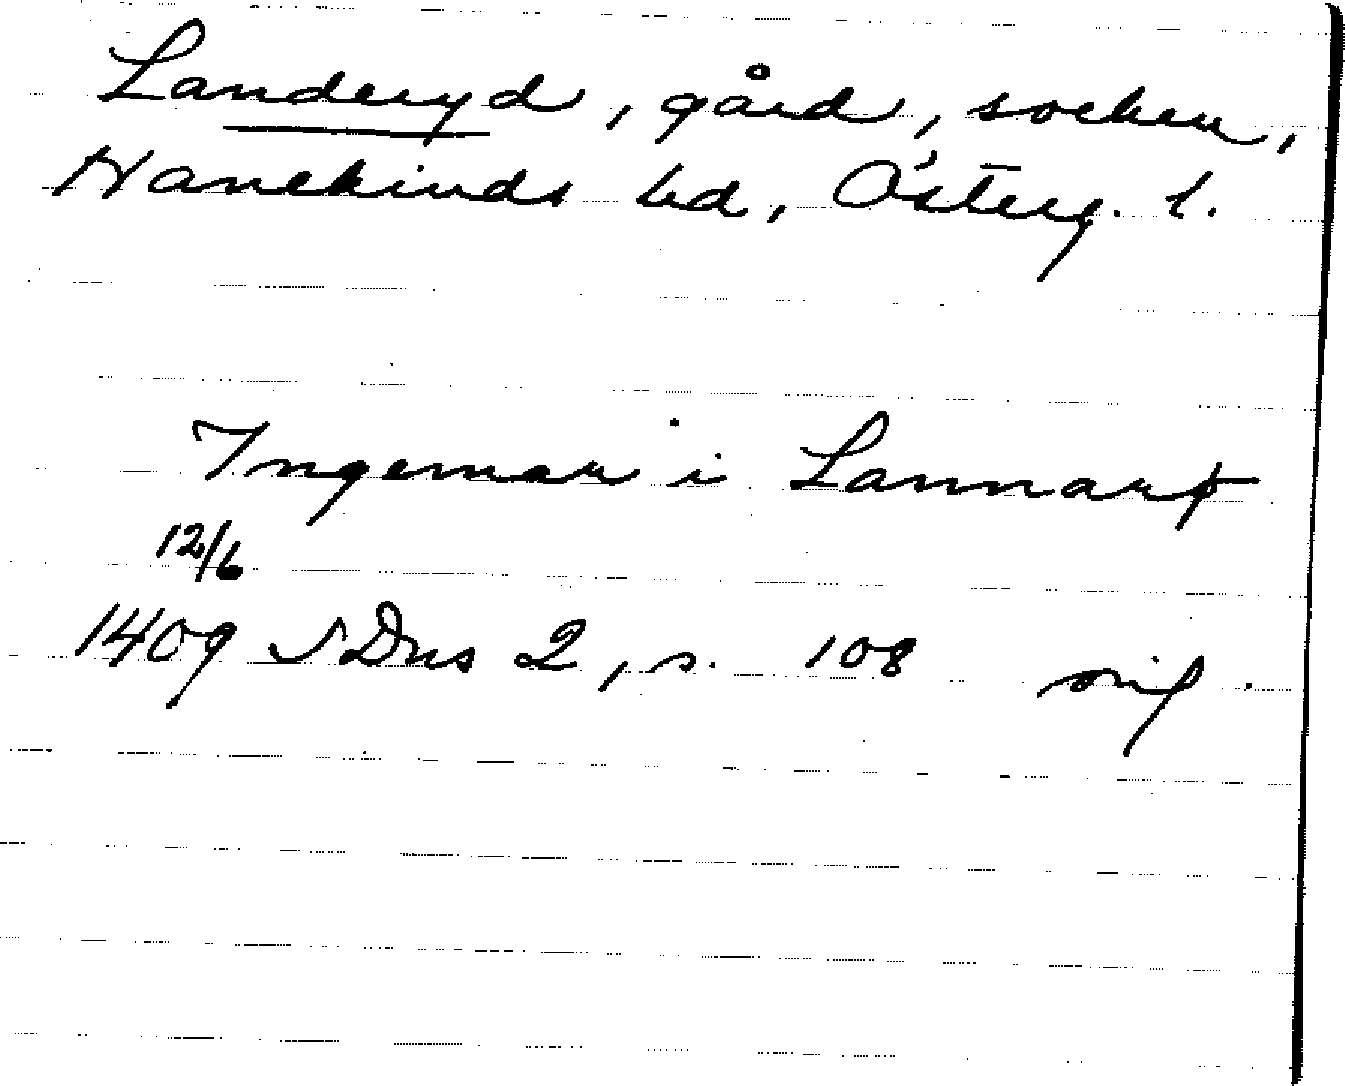 Landeryd, gård, socken,
Hanekinds hd, Österg. l.
Ingemar i Lannarp
12/6
1409 SDns 2, s. 108 orig